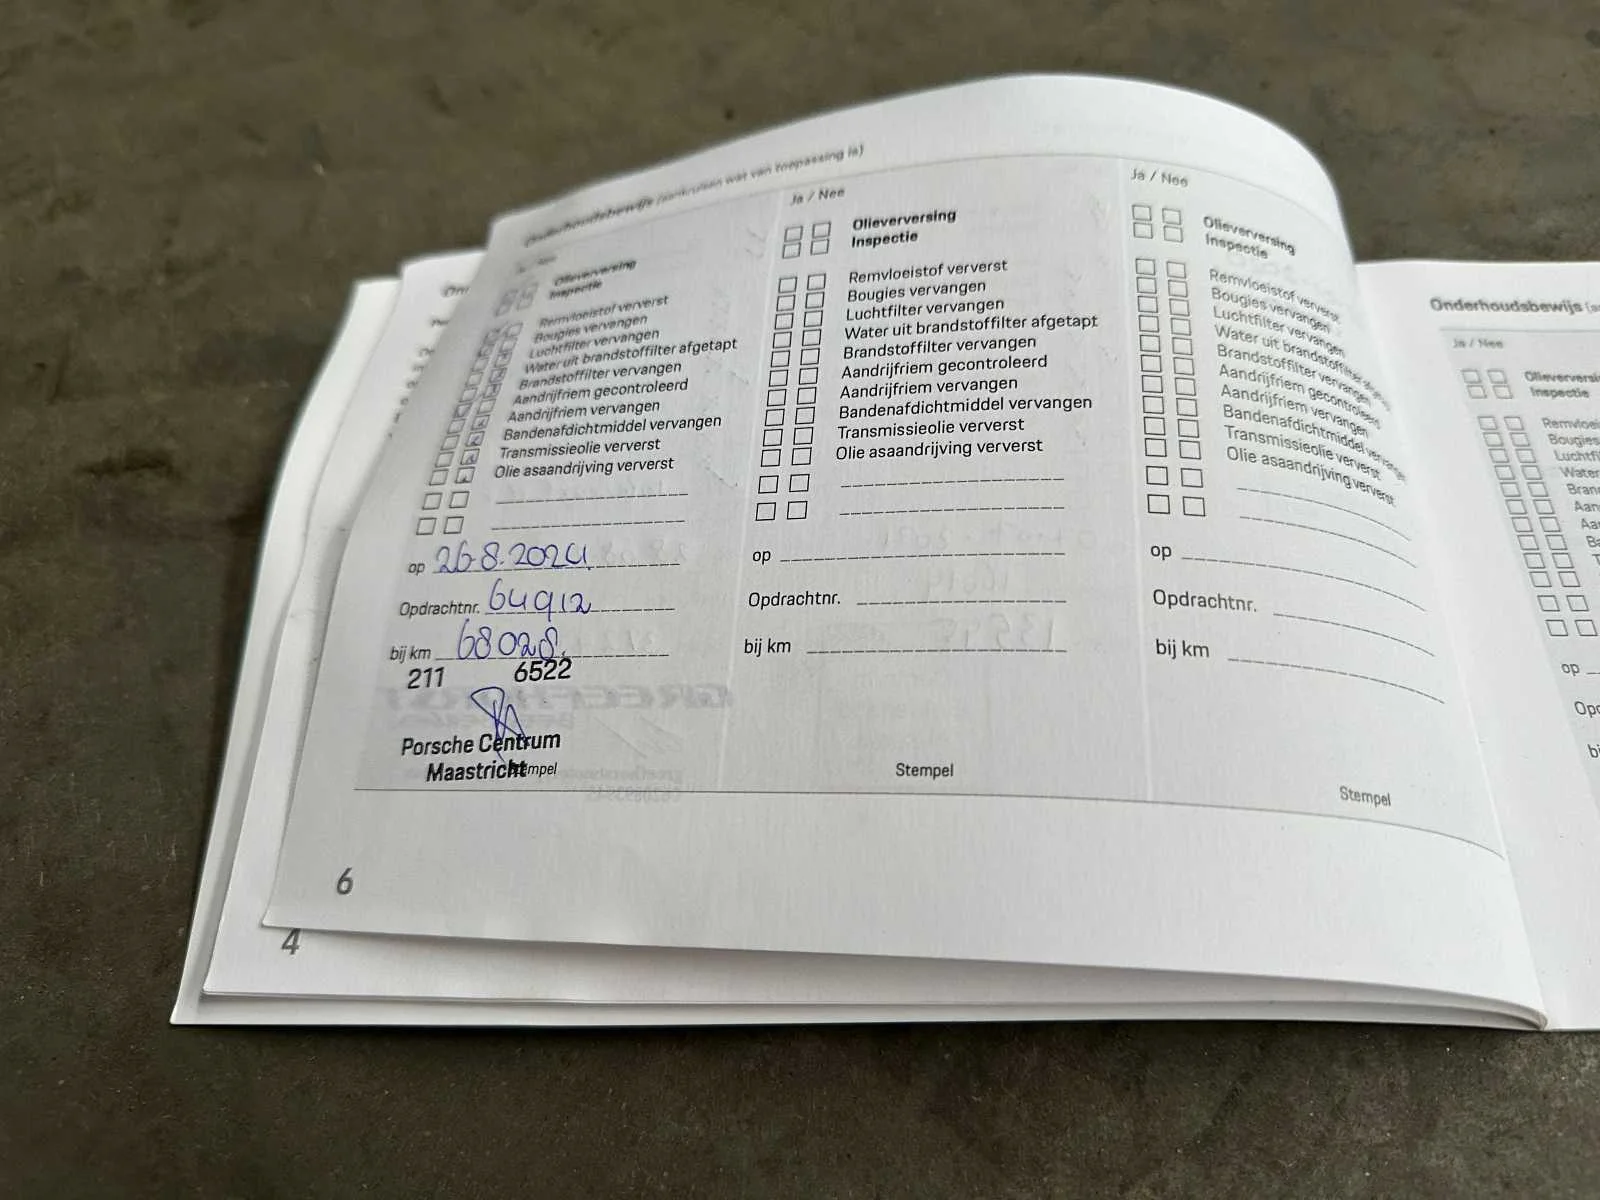 Onderhoudsbewijs (aankruisen wat van toepassing is)
Olieverversing
Inspectie
Remvloeistof ververst
Bougies vervangen
Luchtfilter vervangen
Water uit brandstoffilter afgetapt
Brandstoffilter vervangen
Aandrijfriem gecontroleerd
Aandrijfriem vervangen
Bandenafdichtmiddel vervangen
Transmissieolie ververst
Olie asaandrijving ververst
op 26.8.2024
Opdrachtnr. 64912
bij km 68028.
211 6522
Porsche Centrum
Maastricht
Stempel
6
4
Ja / Nee
Olieverversing
Inspectie
Remvloeistof ververst
Bougies vervangen
Luchtfilter vervangen
Water uit brandstoffilter afgetapt
Brandstoffilter vervangen
Aandrijfriem gecontroleerd
Aandrijfriem vervangen
Bandenafdichtmiddel vervangen
Transmissieolie ververst
Olie asaandrijving ververst
op
Opdrachtnr.
bij km
Stempel
Ja / Nee
Olieverversing
Inspectie
Remvloeistof ververst
Bougies vervangen
Luchtfilter vervangen
Water uit brandstoffilter
Brandstoffilter vervangen
Aandrijfriem gecontroleerd
Aandrijfriem vervangen
Bandenafdichtmiddel vervangen
Transmissieolie ververst
Olie asaandrijving ververst
op
Opdrachtnr.
bij km
Stempel
Onderhoudsbewijs
Ja / Nee
Olieversi
Inspectie
Remvloei
Bougies
Luchtfi
Water
Bran
Aan
Aa
op
Opd